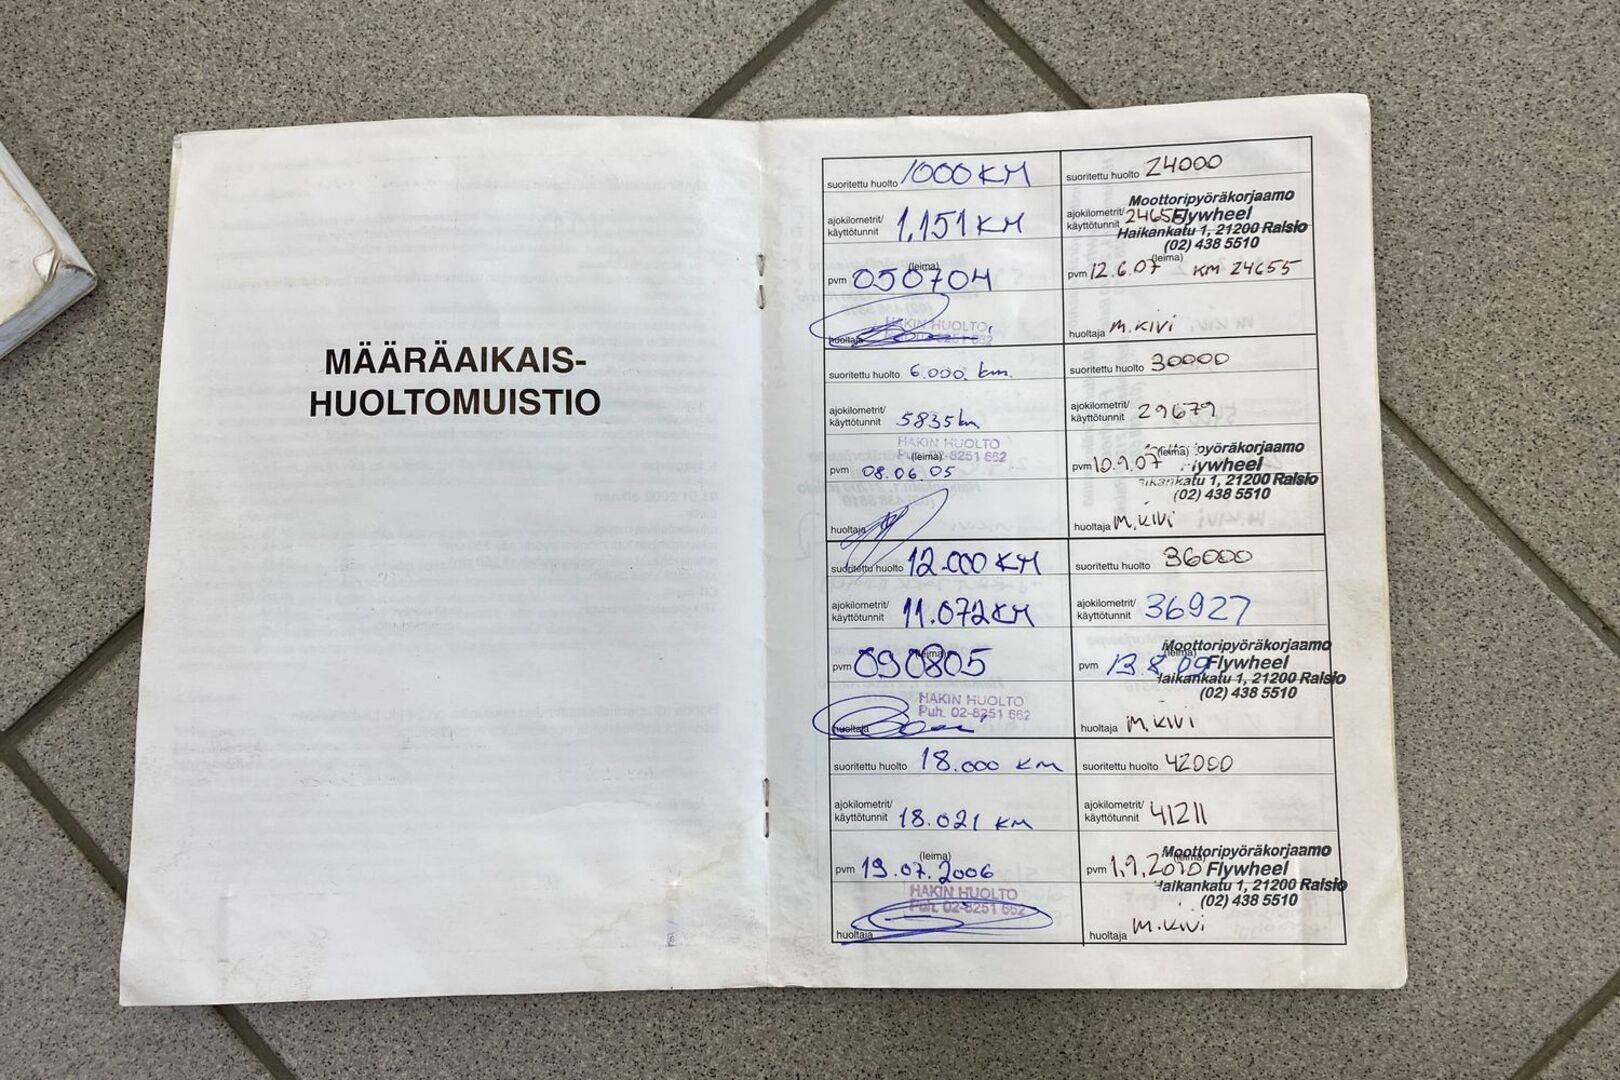 MÄÄRÄAIKAIS-
HUOLTOMUISTIO
suoritettu huolto 1000 KM
ajokilometrit/
käyttötunnit 1.151 KM
(leima)
pvm 050704
HAKIN HUOLTO
huoltaja
suoritettu huolto 6.000. km.
ajokilometrit/
käyttötunnit 5835 km
HAKIN HUOLTO
Puh. 02-8251 662
(leima)
pvm 08.06.05
huoltaja
suoritettu huolto 12.000 KM
ajokilometrit/
käyttötunnit 11.072 KM
(leima)
pvm 090805
HAKIN HUOLTO
Puh. 02-8251 662
huoltaja
suoritettu huolto 18.000 KM
ajokilometrit/
käyttötunnit 18.021 KM
(leima)
pvm 19.07.2006
HAKIN HUOLTO
Puh. 02-8251 662
huoltaja
suoritettu huolto 24000
Moottoripyöräkorjaamo
ajokilometrit/
käyttötunnit 24655 Flywheel
Haikankatu 1, 21200 Raisio
(02) 438 5510
(leima)
pvm 12.6.07 KM 24655
huoltaja M. KIVI
suoritettu huolto 30000
ajokilometrit/
käyttötunnit 29679
(leima) pyöräkorjaamo
pvm 10.9.07 lywheel
aikankatu 1, 21200 Raisio
(02) 438 5510
huoltaja M. KIVI
suoritettu huolto 36000
ajokilometrit/
käyttötunnit 36927
Moottoripyöräkorjaamo
(leima)
pvm 13.8.09 Flywheel
aikankatu 1, 21200 Raisio
(02) 438 5510
huoltaja M. KIVI
suoritettu huolto 42000
ajokilometrit/
käyttötunnit 41211
Moottoripyöräkorjaamo
(leima)
pvm 1.9.2010 Flywheel
aikankatu 1, 21200 Raisio
(02) 438 5510
huoltaja M. KIVI